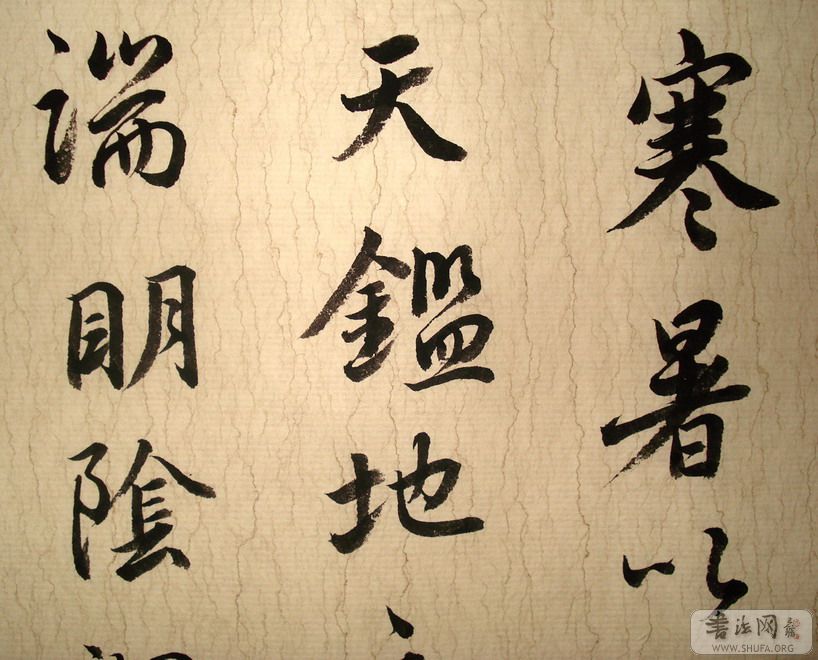 寒暑以
天鑑地
端眀陰
書法网
WWW.SHUFA.ORG